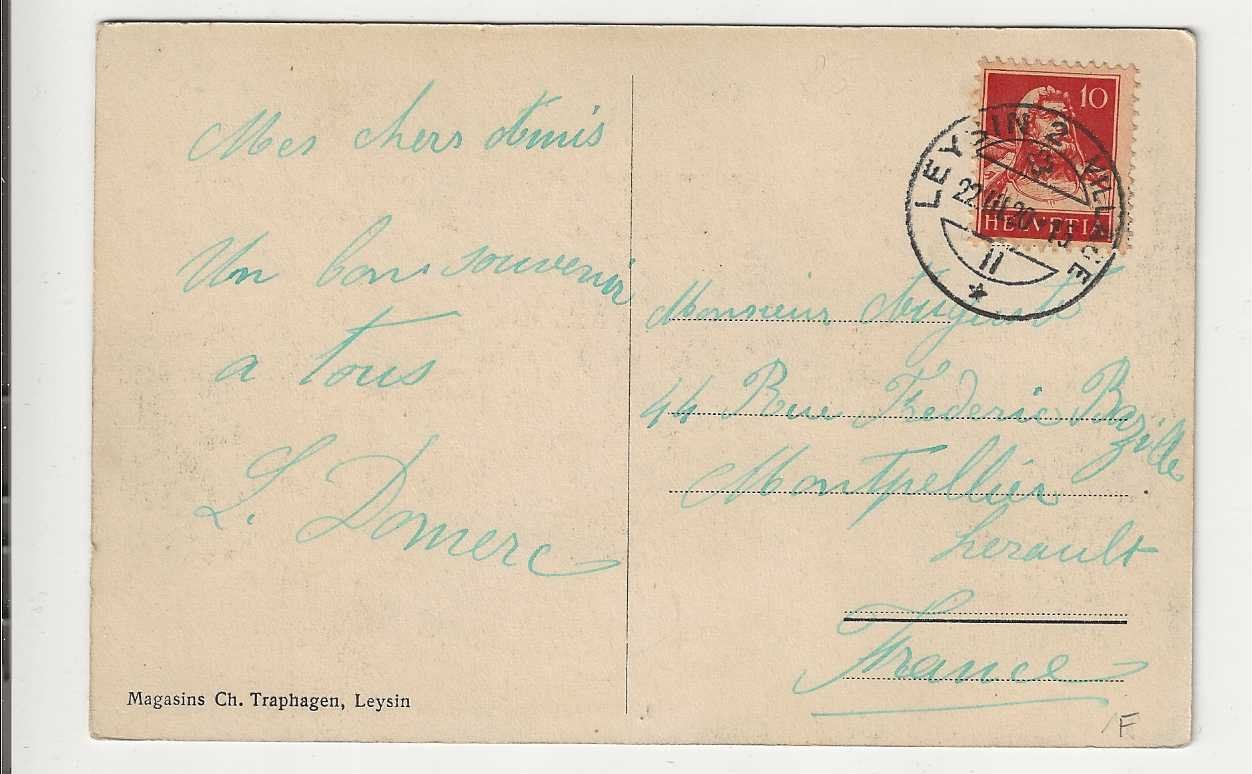 Mes chers Amis
Un bon souvenir
a tous
L. Domerc
Magasins Ch. Traphagen, Leysin
10
HELVETIA
LEYSIN 2 VILLAGE
22.
11
Monsieur Auguste
44 Rue Frederic Bazille
Montpellier
herault
France
F